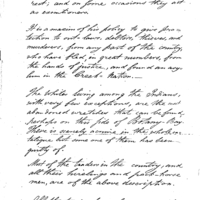 rest; and on some occasions they act
as executioners.
It is a maxim of his policy to give pro-
tection to out-laws, debtors, thieves, and
murderers, from any part of the country,
who have fled, in great numbers, from
the hands of justice, and found an asy-
lum in the Creek-Nation.
The Whites living among the Indians,
with very few exceptions, are the most
abandoned wretches that can be found,
perhaps, on this side of Botany Bay;
there is scarcely a crime in the whole
but some one of them has been
guilty of.
Most of the traders in the country, and
all their hirelings and pack-horse
men, are of the above description.
All